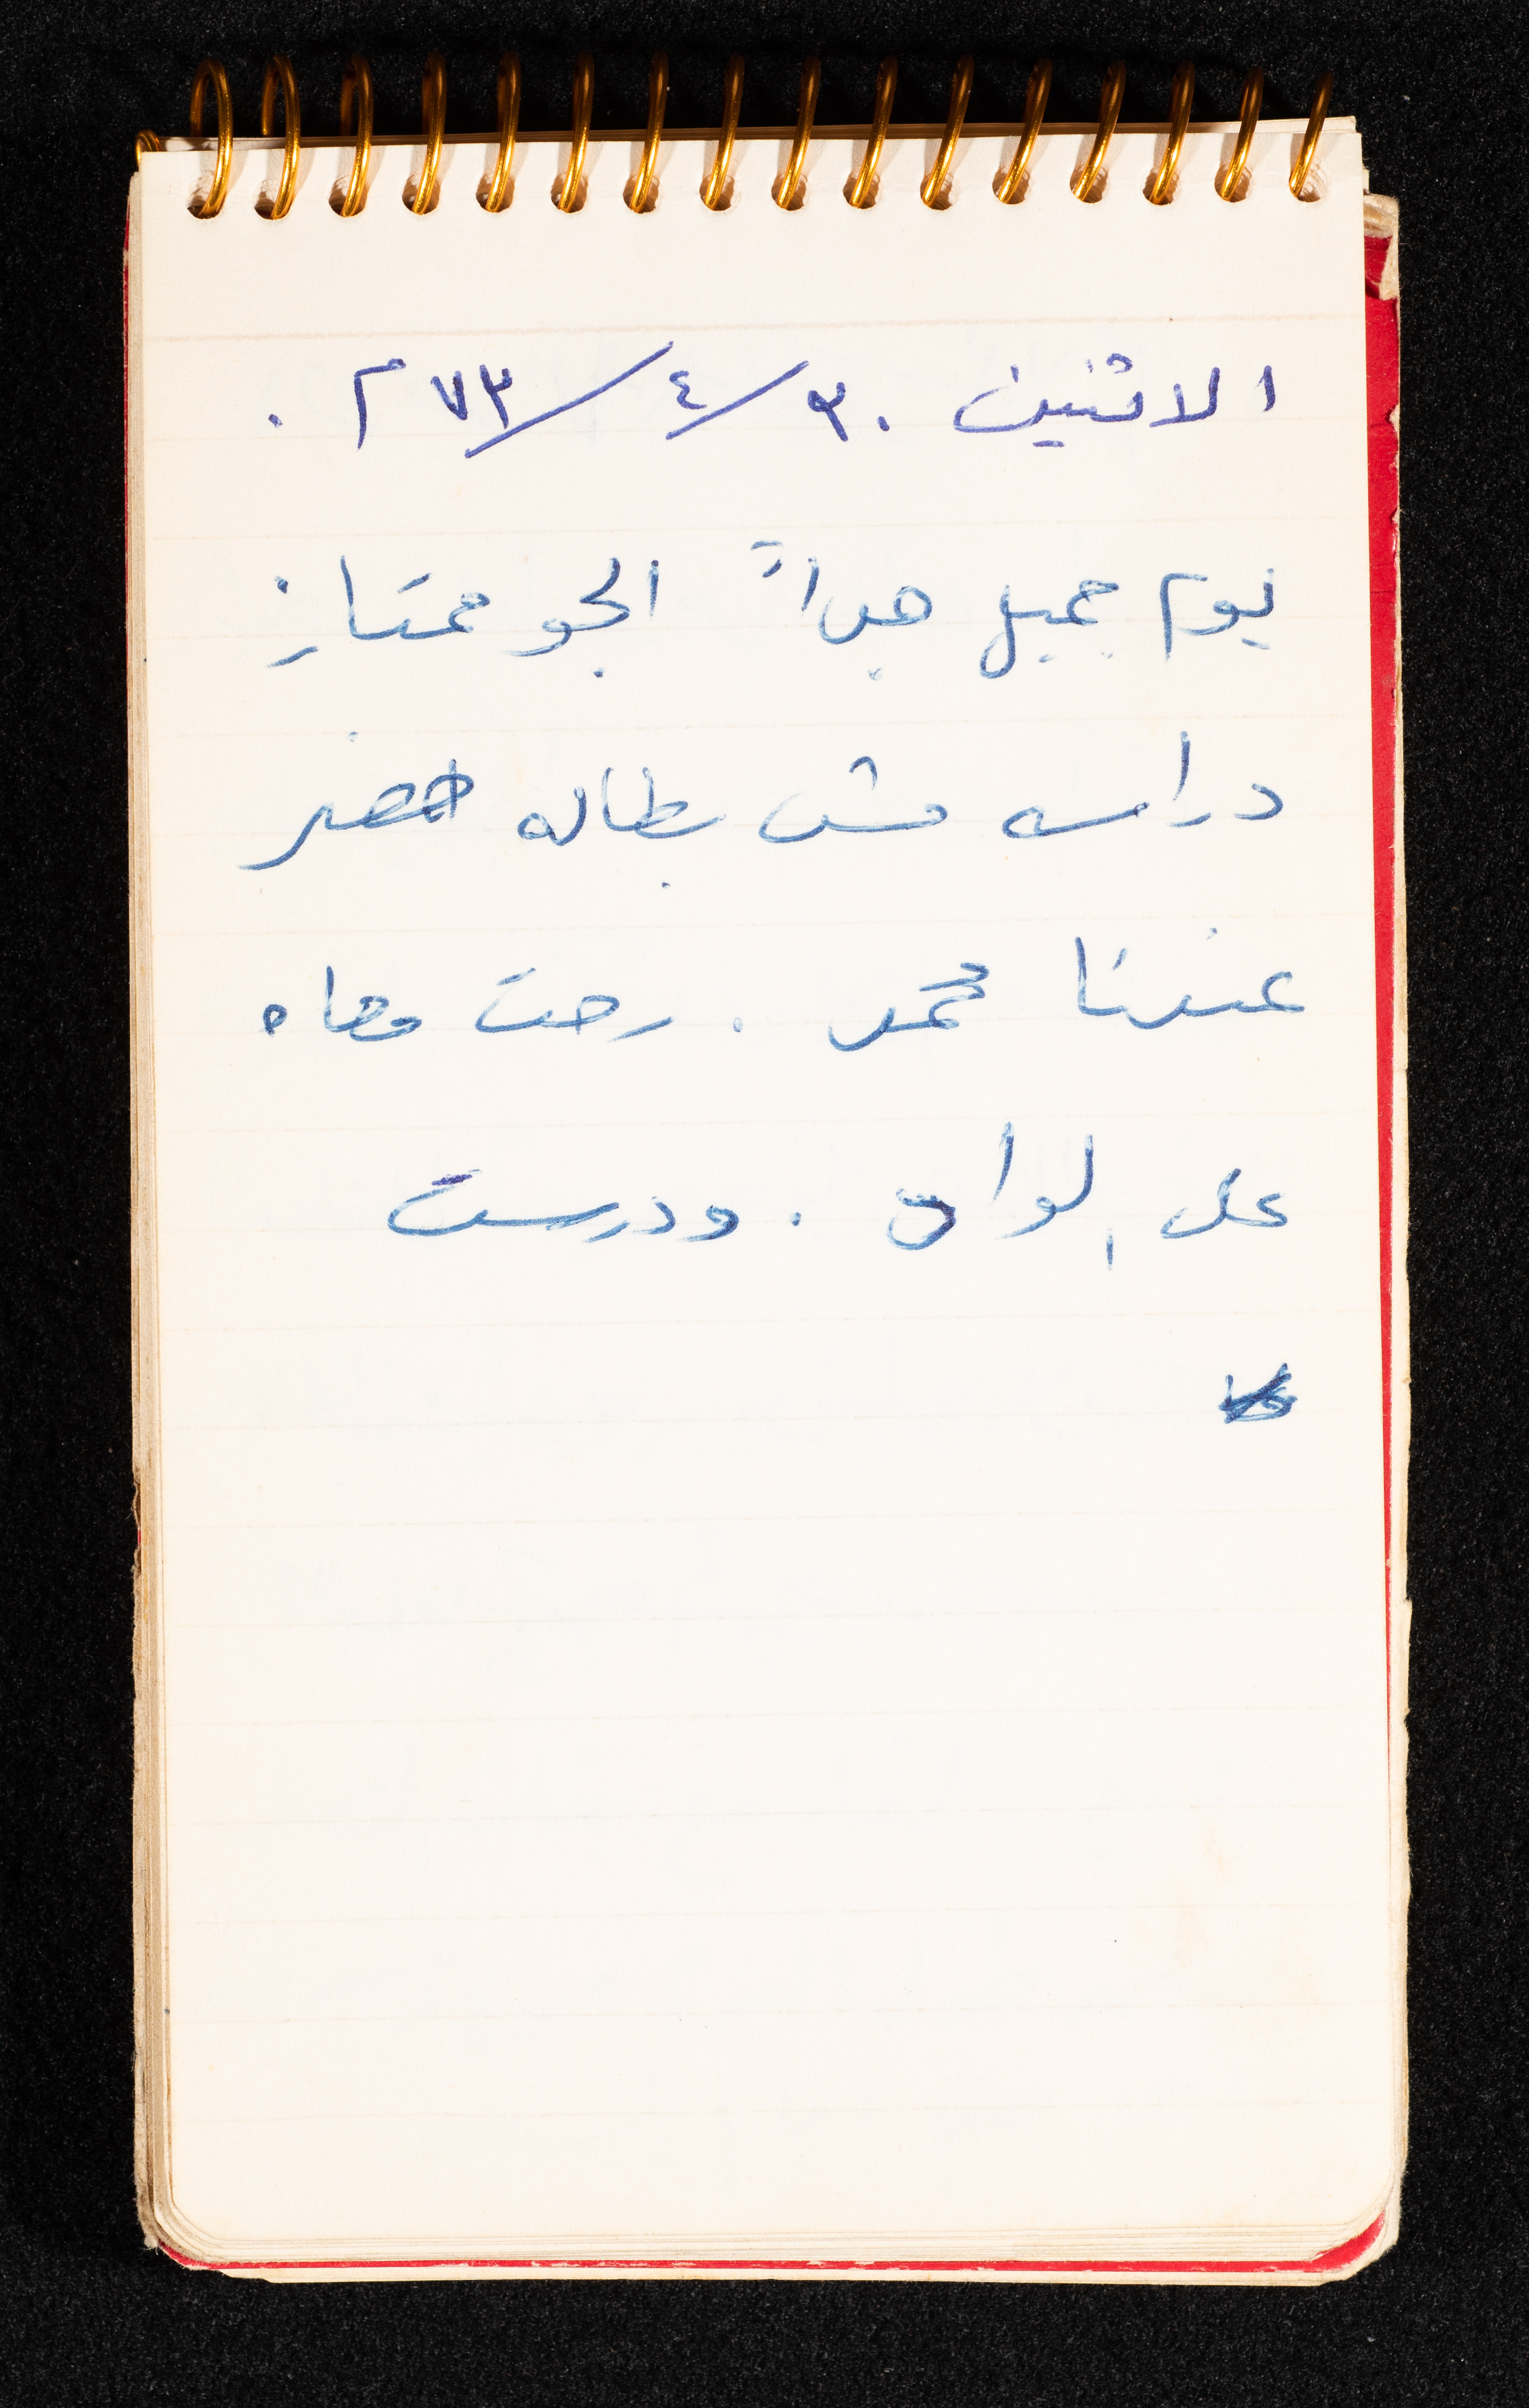 الاثنين ٣٠/٤/٧٣ م .
يوم جميل جداً الجو ممتاز
دراسه مش بطاله حضر
عندنا محمد . رحت معاه
على الوادي . ودرست